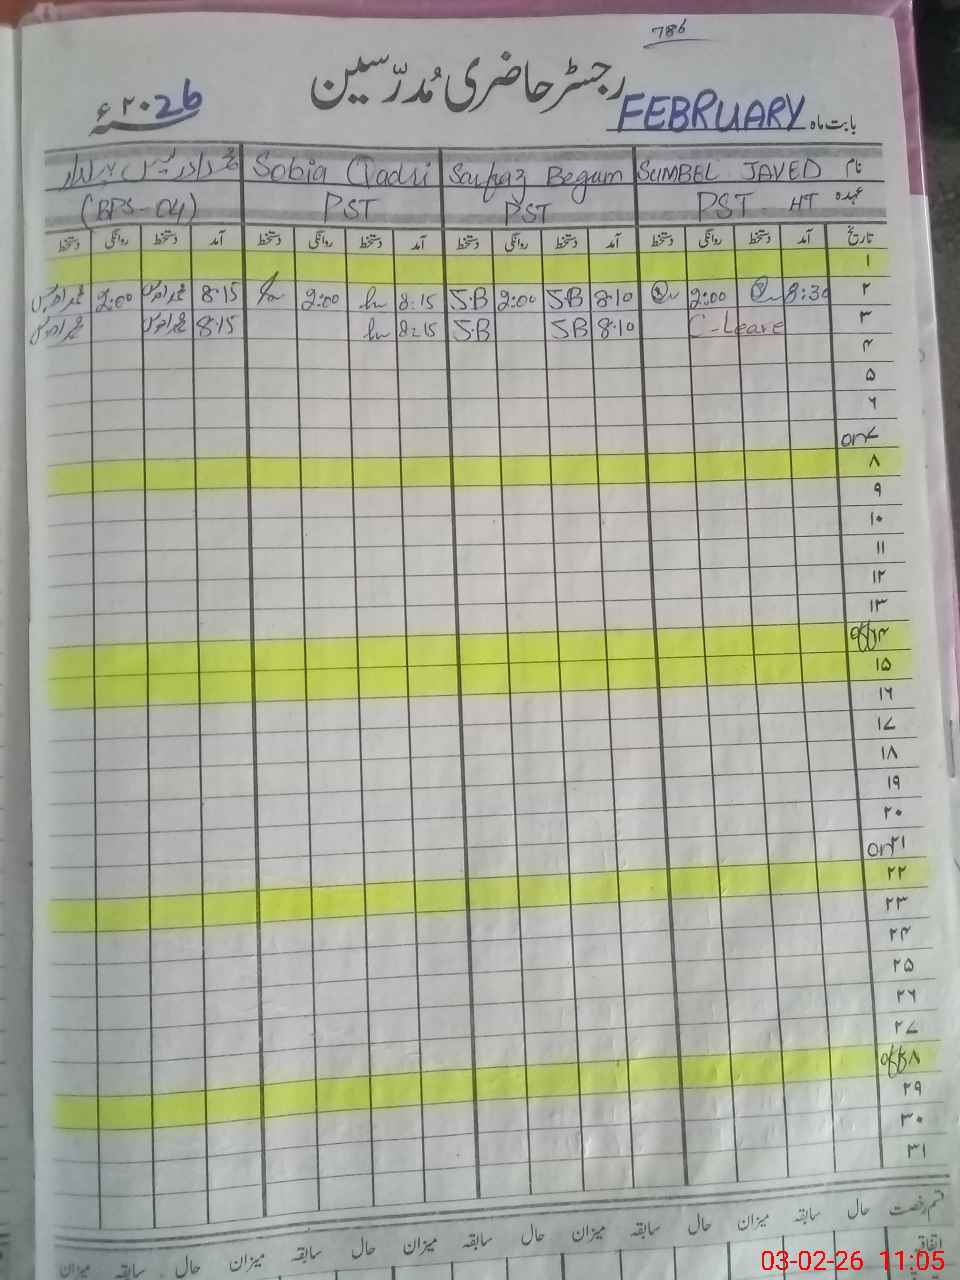 786
رجسٹر حاضری مُدرّسین
بابت ماہ FEBRUARY ۲۰26ء
نام SUMBEL JAVED Sarfraz Begum Sobia Qadri
عہدہ PST - HT PST PST (BPS-04)
تاریخ آمد دستخط روانگی دستخط آمد دستخط روانگی دستخط آمد دستخط روانگی دستخط آمد دستخط روانگی دستخط
۱
۲ 8:30 2:00 8:10 S.B 2:00 S.B 8:15 2:00 8:15 2:00
۳ C-Leave 8:10 S.B S.B 8:15 8:15
۴
۵
۶
۷ on
۸
۹
۱۰
۱۱
۱۲
۱۳
۱۴ off
۱۵
۱۶
۱۷
۱۸
۱۹
۲۰
۲۱ on
۲۲
۲۳
۲۴
۲۵
۲۶
۲۷
۲۸ off
۲۹
۳۰
۳۱
قسم رخصت حال سابقہ میزان حال سابقہ میزان حال سابقہ میزان حال سابقہ میزان
اتفاقیہ
03-02-26 11:05